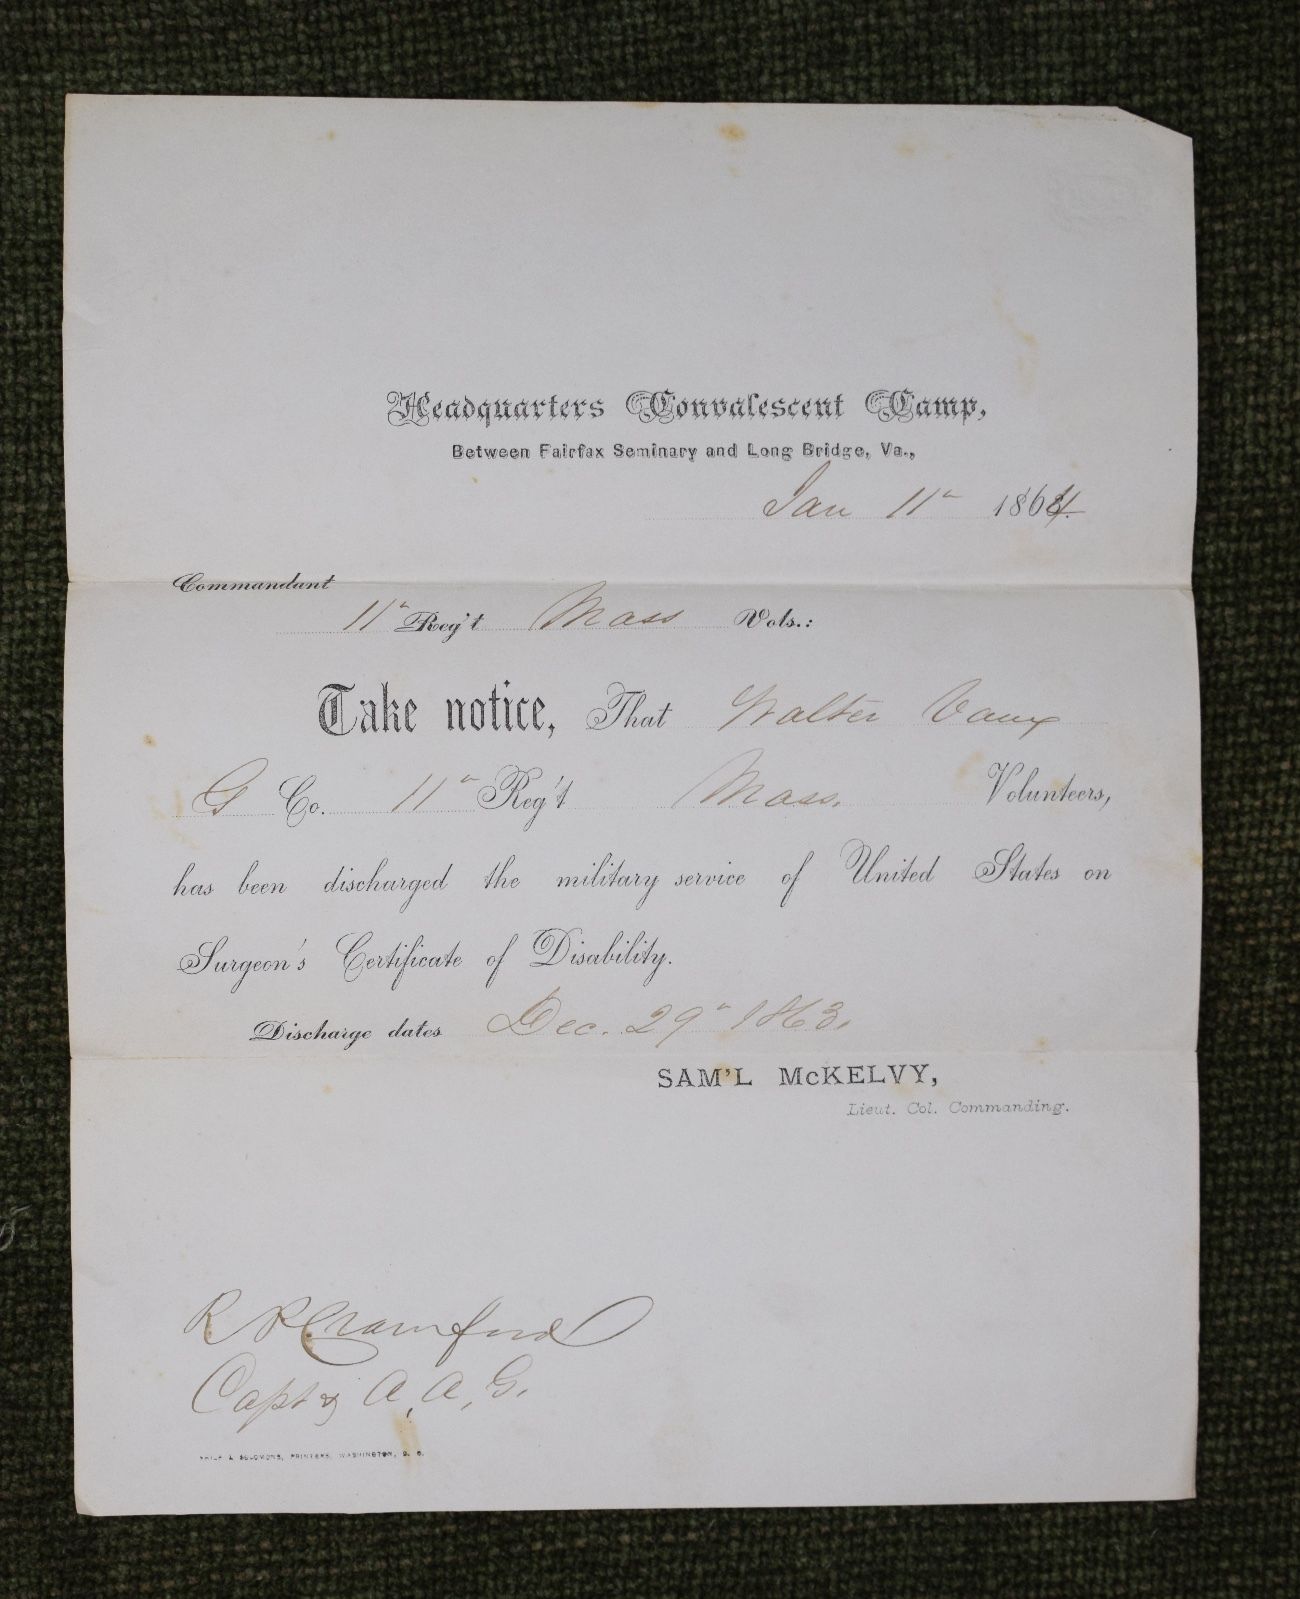 Headquarters Convalescent Camp,
Between Fairfax Seminary and Long Bridge, Va.,
Jan 11th 1864.
Commandant
11th Reg't Mass Vols.:
Take notice, That Walter Vaux
G Co. 11th Reg't Mass. Volunteers,
has been discharged the military service of United States on
Surgeon's Certificate of Disability.
Discharge dates Dec. 29th 1863.
SAM'L McKELVY,
Lieut. Col. Commanding.
R P Crawford
Capt & A, A, G.
PHILP & SOLOMONS, PRINTERS, WASHINGTON, D. C.